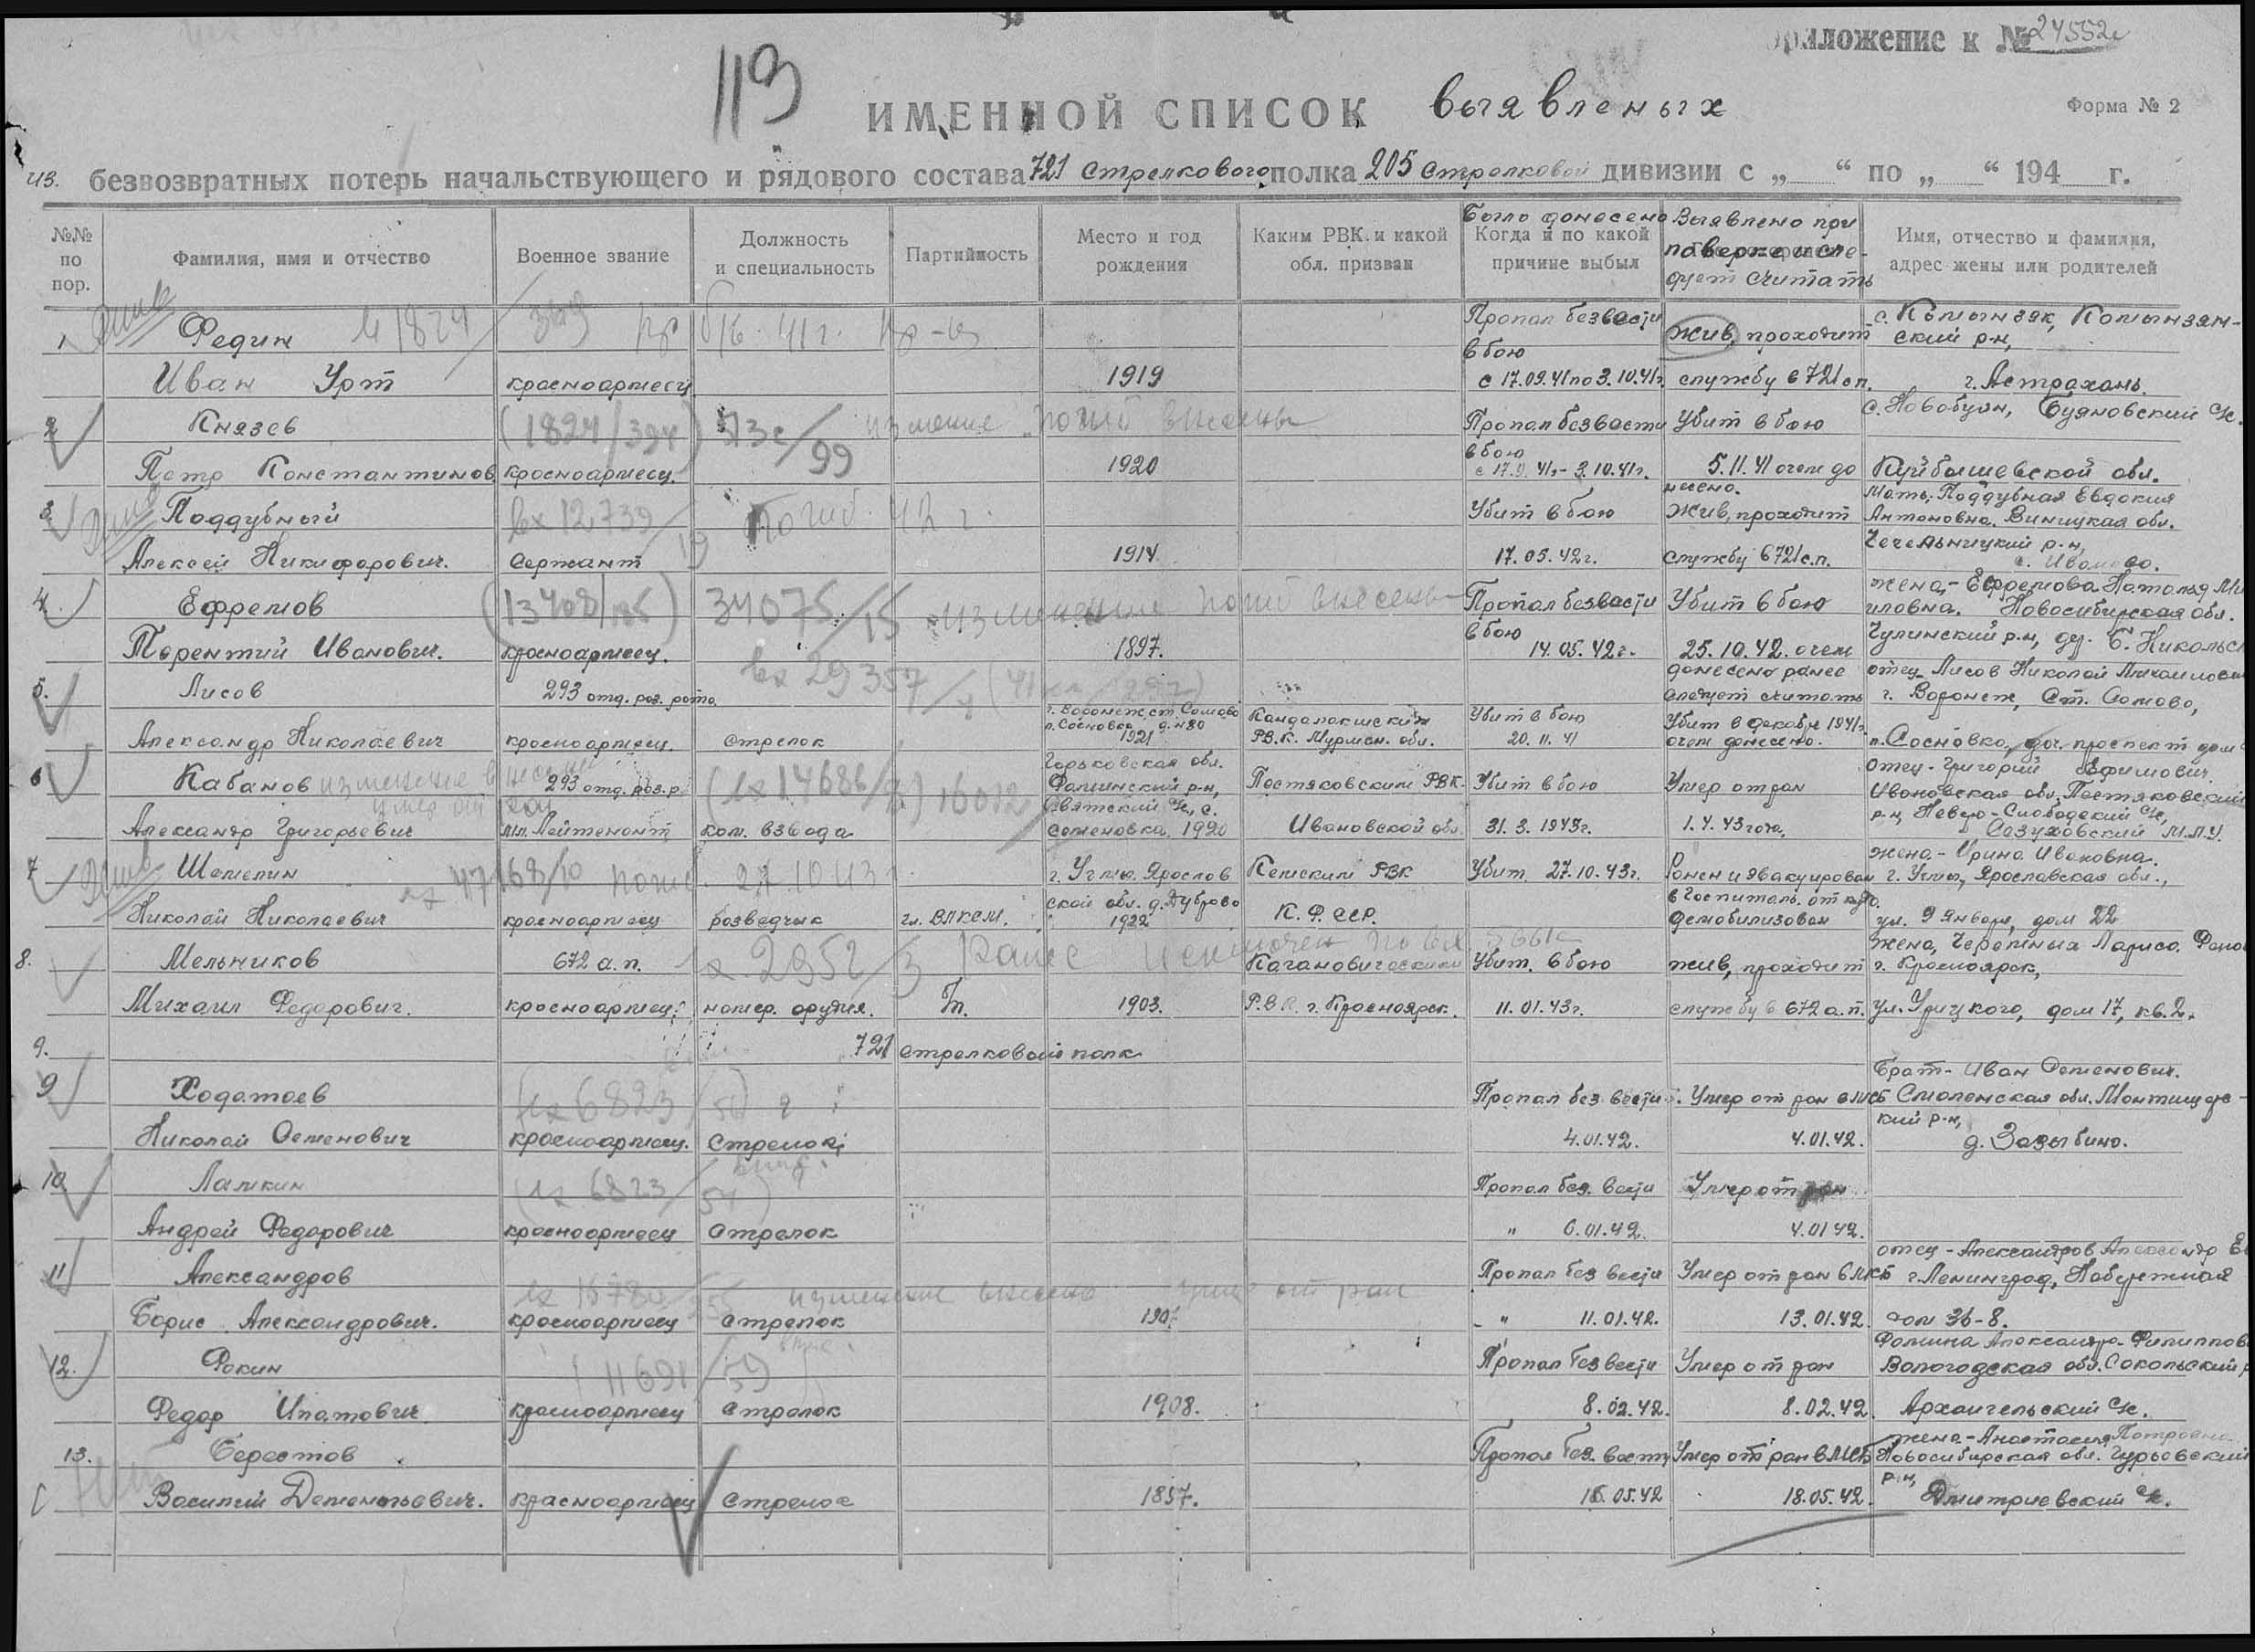 Приложение к № 24552с
113
ИМЕННОЙ СПИСОК выявленых
Форма № 2
из. безвозвратных потерь начальствующего и рядового состава 721 стрелкового полка 205 стрелковой дивизии с „ “ по „ “ 194 г.
№№ по пор.
Фамилия, имя и отчество
Военное звание
Должность и специальность
Партийность
Место и год рождения
Каким РВК и какой обл. призван
Было донесено Когда и по какой причине выбыл
Выявлено при поверке и следует считать
Имя, отчество и фамилия, адрес жены или родителей
1 Федин 1824/349 Пропал без вести в бою Жив, проходит
Иван Урт красноармеец 1919 с 17.09.41 по 3.10.41г. службу в 721 с п.
ский р-н,
г. Астрахань.
2 Князев (1824/394) 99 изменение внесены Пропал без вести в бою Убит в бою с. Новобуян, Буяновский с/с.
Петр Константинов. красноармеец. 1920 с 17.9.41г - 3.10.41г. 5.11.41 о чем донесено. Куйбышевской обл.
3 Поддубный вх 12739/19 погиб 42 г. Убит в бою Жив, проходит Мать: Поддубная Евдокия Антоновна. Виницкая обл.
Алексей Никифорович. Сержант 1914 17.05.42г. службу в 721 с.п. Чечельницкий р-н,
4. Ефремов (13408/185) 34075/15 изменение внесены Пропал без вести в бою Убит в бою жена - Ефремова
Новосибирская обл.
Терентий Иванович. красноармеец. 1897. 14.05.42г. 25.10.42. о чем донесено ранее
5. Лисов 293 отд. раз. рота вх 29357 следует считать отец Лисов Николай
г. Воронеж, Ст. Сомово,
г. Воронеж ст. Сомово п. Сосновка д. н 80 1921
Александр Николаевич красноармеец. стрелок Кандалакшским РВ.К. Мурман. обл. Убит в бою 20.11.41 Убит в декабре 1941г. о чем донесено. п. Сосновка, проспект дом
6 Кабанов изменение внесены умер от ран 293 отд. раз. р. (вх 14686) 16012 Горьковская обл. Фоминский р-н, Постяковским РВК. Убит в бою Умер от ран отец - Григорий Ефимович.
Ивановская обл, Постяковский
Александр Григорьевич мл. Лейтенант ком. взвода Святский с/с, с. Семеновка 1920 Ивановской обл. 31.3.1943г. 1.4.43 года, р-н,
7 Шемелин вх 47168/10 г. Углич Ярославской обл. д. Дуброво 1922 Кемским РВК Убит 27.10.43г. Ранен и эвакуирован в госпиталь. жена - Ирина Ивановна.
г. Углич, Ярославская обл.,
Николай Николаевич красноармеец розведчик чл. ВЛКСМ. К.Ф.ССР. демобилизован ул. 9 Января, дом 22
8. Мельников 672 а.п. вх 2952/3 Ранее исключен по вх Кагановическим Убит. в бою жив, проходит жена,
г. Красноярск,
Михаил Федорович. красноармеец. номер. орудия. 1903. Р.В.К. г. Красноярск. 11.01.43г. службу в 672 а.п. ул. Урицкого, дом 17, кв. 2.
9. 721 стрелковый полк
9 Ходатаев (вх 6823/50) Пропал без вести. Умер от ран в МСБ Брат - Иван Семенович.
Смоленская обл.
Николай Семенович красноармеец. стрелок 4.01.42. 4.01.42. кий р-н,
10 Лашкин (вх 6823/54) Пропал без вести Умер от ран
Андрей Федорович красноармеец стрелок " 6.01.42. 4.01.42.
11 Александров изменение внесено умер от ран Пропал без вести Умер от ран в МСБ отец - Александров
г. Ленинград, Набережная
Борис Александрович. красноармеец стрелок " 11.01.42. 13.01.42. дом 36-8.
12. Фокин 11691/59 Пропал без вести Умер от ран
Вологодская обл. Сокольский р
Федор Ипатович. красноармеец стрелок 1908. 8.02.42. 8.02.42. Архангельский с/с.
13. Берестов Пропал без вести Умер от ран в МСБ жена - Анастасия Петровна
Новосибирская обл. Гурьевский р-н,
Василий Дементьевич. красноармеец стрелок 1897. 18.05.42. Дмитриевский с/с.